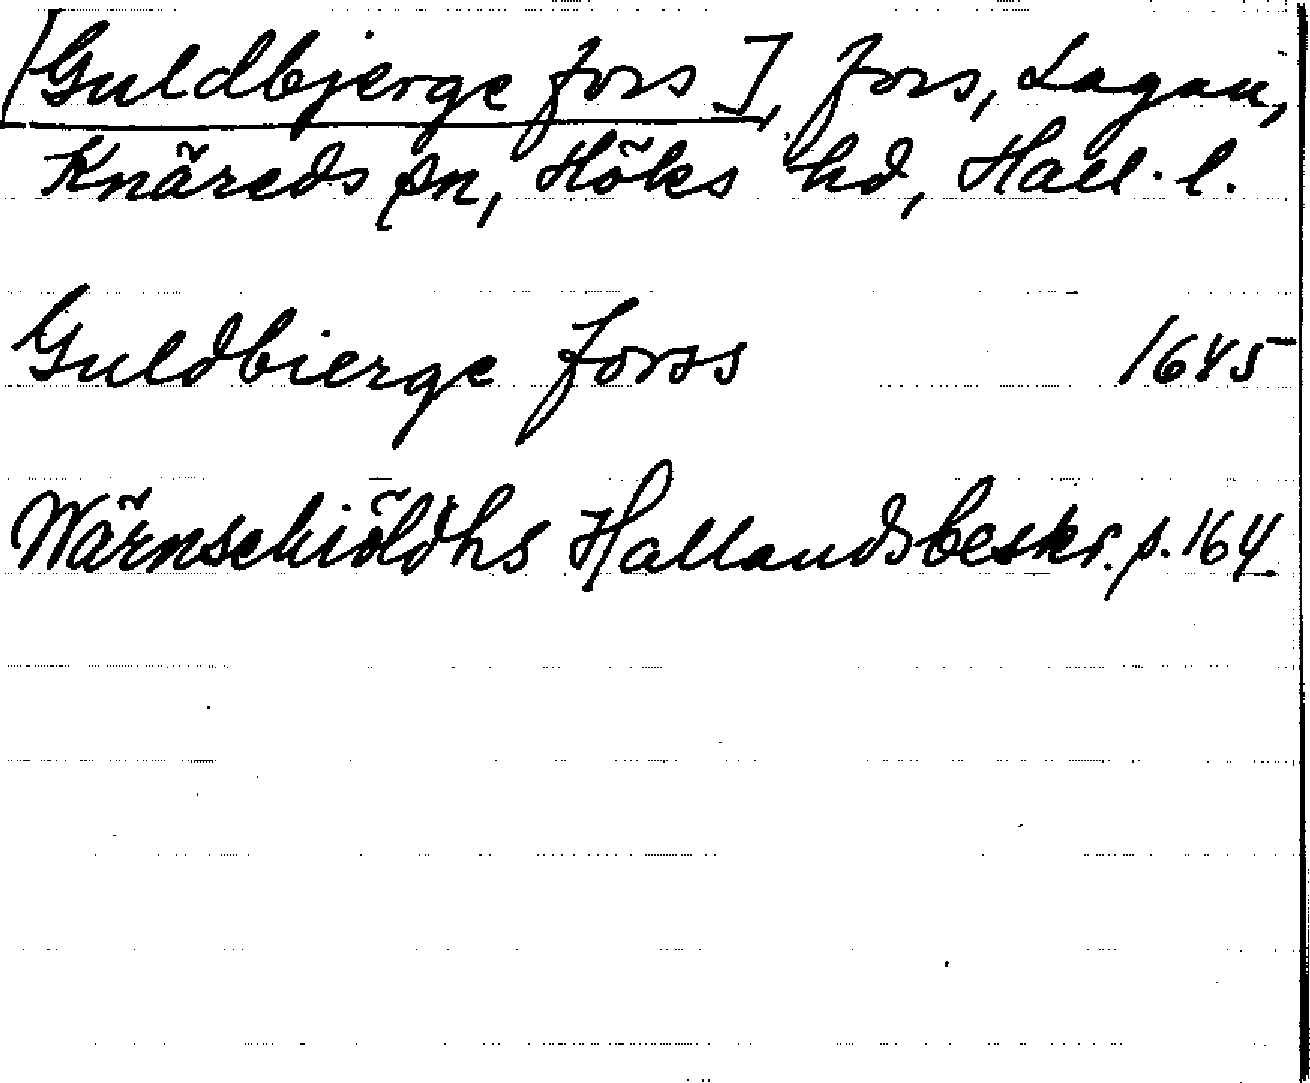 [Guldbjerge fors], fors, Lagan,
Knäreds sn, Höks hd, Hall. l.
Guldbierge forss 1645
Wärnschiöldhs Hallandsbeskr. p. 164